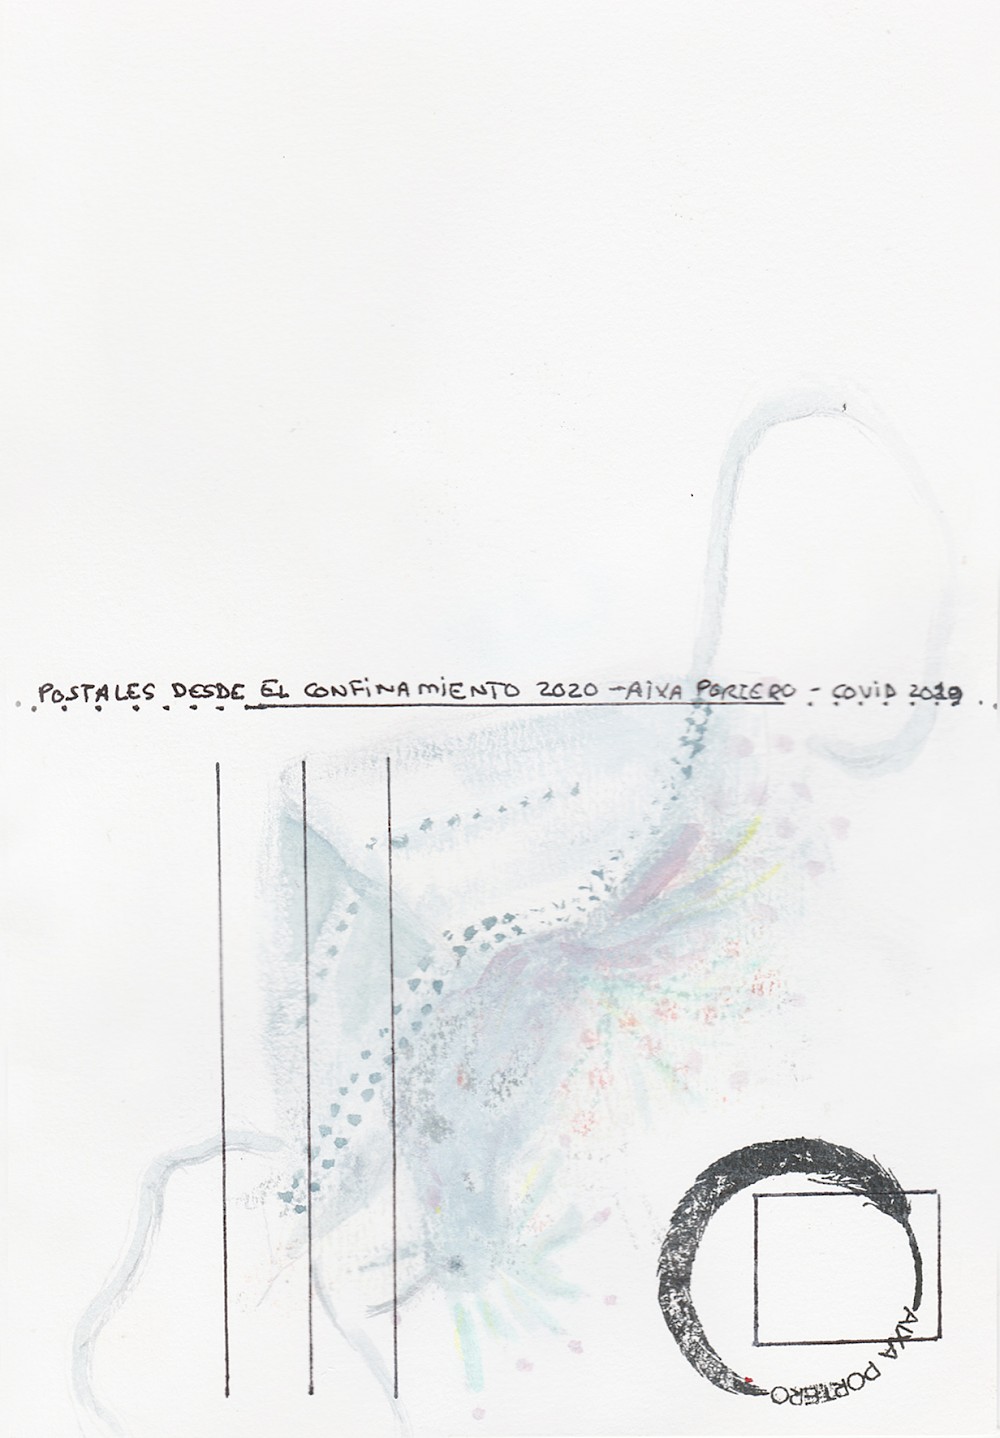 POSTALES DESDE EL CONFINAMIENTO 2020 - AIXA PORTERO - COVID 2019
AIXA PORTERO